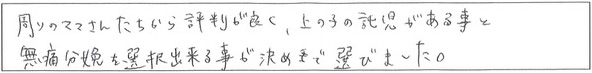 周りのママさんたちから評判が良く、上の子の託児がある事と
無痛分娩を選択出来る事が決め手で選びました。